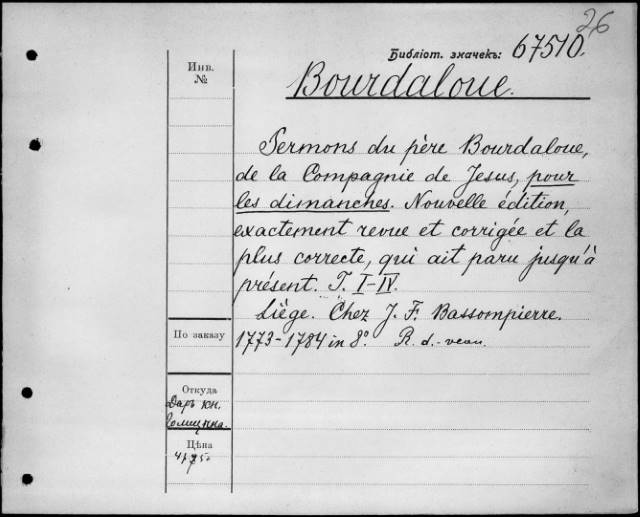 26
Библіот. значекъ: 67510.
Инв.
№
Bourdaloue.
Sermons du père Bourdaloue,
de la Compagnie de Jesus, pour
les dimanches. Nouvelle édition,
exactement revue et corrigée et la
plus correcte, qui ait paru jusqu'à
présent. T. I-IV.
Liège. Chez J. F. Bassompierre.
По заказу
1773-1784 in 8°. R. d.-veau.
Откуда
Даръ кн.
Голицына.
Цѣна